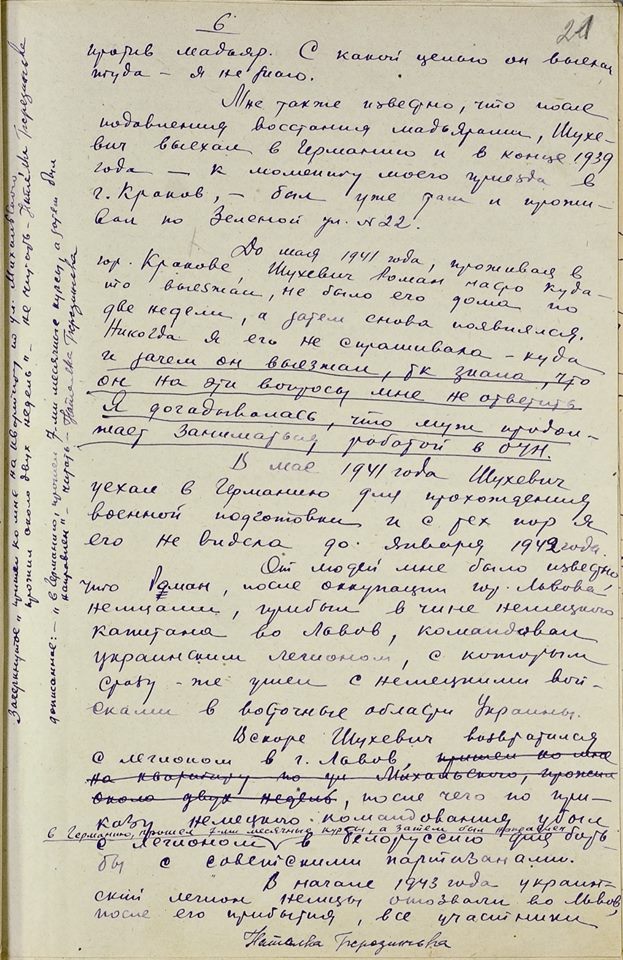 6
21
против мадьяр. С какой целью он выехал
туда – я не знаю.
Мне также известно, что после
подавления восстания мадьярами, Шухе-
вич выехал в Германию и в конце 1939
года – к моменту моего приезда в
г. Краков, – был уже там и прожи-
вал по Зеленой ул. N 22.
До мая 1941 года, проживая в
гор. Кракове, Шухевич Роман часто куда-
что выезжал, не было его дома по
две недели, а затем снова появлялся.
Никогда я его не спрашивала – куда
и зачем он выезжал, тк знала, что
он на эти вопросы мне не ответить
Я догадывалась, что муж продол-
жает заниматься работой в ОУН.
В мае 1941 года Шухевич
уехал в Германию для прохождения
военной подготовки и с тех пор я
его не видела до января 1942 года.
От людей мне было известно
что Роман, после оккупации гор. Львова
немцами, прибыл в чине немецкого
капитана во Львов, командовал
украинским легионом, с которым
сразу-же ушел с немецкими вой-
сками в восточные области Украины.
Вскоре Шухевич возвратился
с легионом в г. Львов, пришел ко мне
на квартиру по ул. Михальского, прожил
около двух недель, после чего по при-
казу немецкого командования убыл
в Германию, прошел 7-ми месячные курсы, а затем был направлен
с легионом в Белоруссию для борь-
бы с советскими партизанами.
В начале 1943 года украин-
ский легион немцы отозвали во Львов,
после его прибытия, все участники
Наталка Березинська
Зачеркнутое „пришел ко мне на квартиру по ул. Михальского,
прожил около двух недель" – не читать – Наталка Березинська
дописанное: – „в Германию, прошел 7-ми месячные курсы, а затем был
направлен" – читать – Наталка Березинська